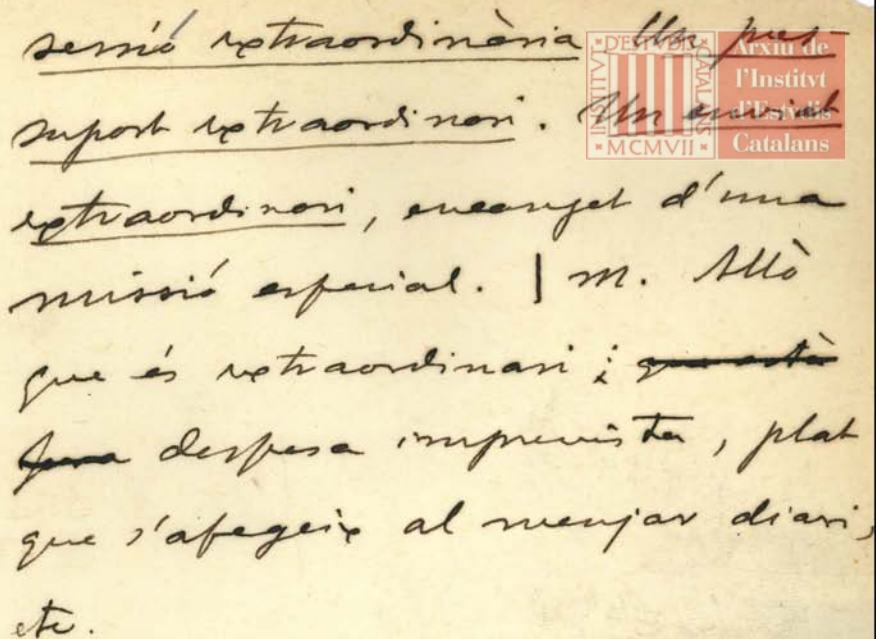 sessió extraordinària Un pres-
supost extraordinari. Un enviat
extraordinari, encarregat d'una
missió especial. | m. Allò
que és extraordinari; que està
fora despesa imprevista, plat
que s'afegeix al menjar diari,
etc.
INSTITVT D'ESTVDIS CATALANS
MCMVII
Arxiu de
l'Institvt
d'Estvdis
Catalans